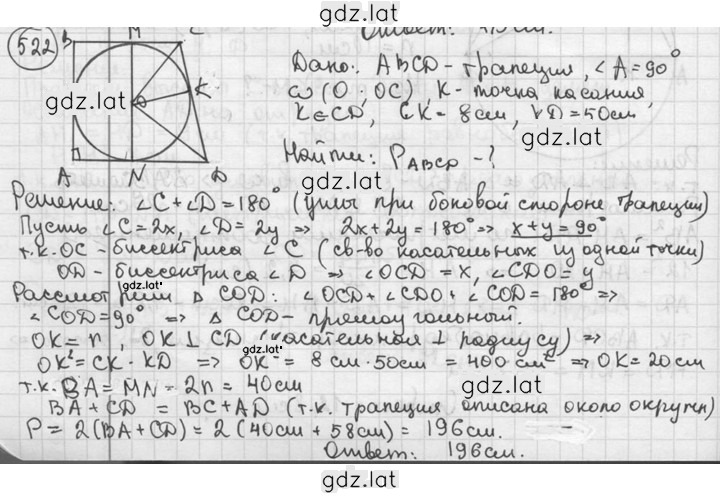 gdz.lat
522
Дано: ABCD - трапеция, ∠A = 90°
ω(O; OC) K - точка касания,
K∈CD, CK = 8см, KD = 50см
Найти: P_ABCD - ?
B M C
gdz.lat
O K
A N D
gdz.lat
Решение: ∠C + ∠D = 180° (углы при боковой стороне трапеции)
Пусть ∠C = 2x, ∠D = 2y ⇒ 2x + 2y = 180° ⇒ x + y = 90°
т.к. OC - биссектриса ∠C (св-во касательных из одной точки)
OD - биссектриса ∠D ⇒ ∠OCD = x, ∠CDO = y
gdz.lat
Рассмотрим △ COD: ∠OCD + ∠CDO + ∠COD = 180° ⇒
∠COD = 90° ⇒ △ COD - прямоугольный
OK = r, OK ⊥ CD (касательная ⊥ радиусу) ⇒
OK² = CK · KD ⇒ OK² = 8 см · 50 см = 400 см² ⇒ OK = 20 см
т.к. BA = MN = 2r = 40 см
BA + CD = BC + AD (т.к. трапеция описана около окружн)
P = 2(BA + CD) = 2(40 см + 58 см) = 196 см.
Ответ: 196 см.
gdz.lat
gdz.lat
gdz.lat